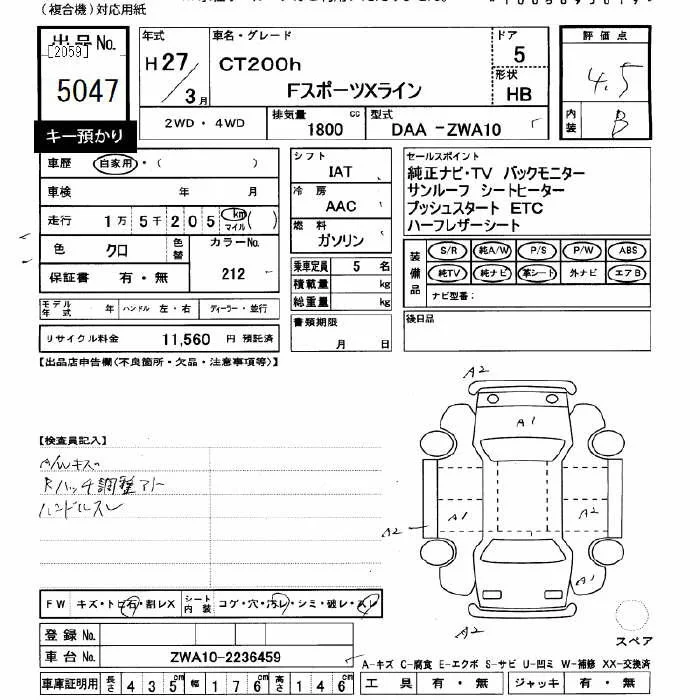 (複合機)対応用紙
出品No.
[2059]
5047
キー預かり
年式
H27/3月
車名・グレード
CT200h
FスポーツXライン
ドア
5
形状
HB
評価点
4.5
内装
B
2WD・4WD
排気量
1800 cc
型式
DAA-ZWA10
車歴 自家用・( )
車検 年 月
走行 1万5千205 km マイル ( )
色 クロ 色替
カラーNo.
212
保証書 有・無
モデル年式 年 ハンドル 左・右 ディーラー・並行
リサイクル料金 11,560 円 預託済
シフト
IAT
冷房
AAC
燃料
ガソリン
乗車定員 5 名
積載量 kg
総重量 kg
書類期限
月 日
セールスポイント
純正ナビ・TV バックモニター
サンルーフ シートヒーター
プッシュスタート ETC
ハーフレザーシート
装備品
S/R 純A/W P/S P/W ABS
純TV 純ナビ 革シート 外ナビ エアB
ナビ型番:
後日品
【出品店申告欄(不良箇所・欠品・注意事項等)】
【検査員記入】
A/Wキズ
Rハッチ調整アト
ハンドルスレ
A2
A1
A2
A1
A2
A1
A2
スペア
FW キズ・トビ石・割レX
シート内装 コゲ・穴・汚レ・シミ・破レ・スレ
登録No.
車台No. ZWA10-2236459
車庫証明用 長さ 435cm 幅 176cm 高さ 146cm
A-キズ C-腐食 E-エクボ S-サビ U-凹ミ W-補修 XX-交換済
工具 有・無 ジャッキ 有・無